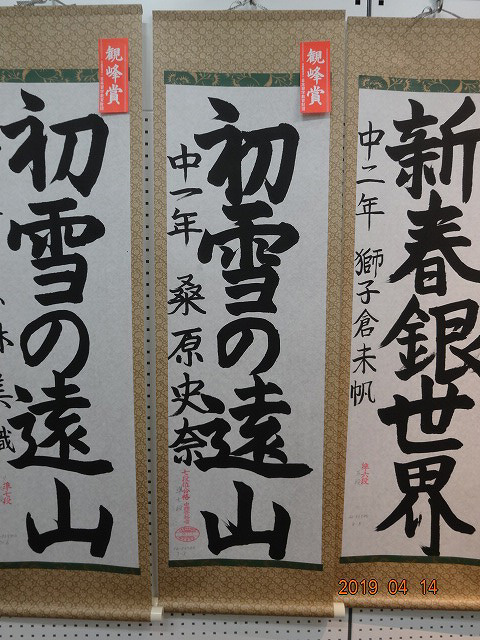 新春銀世界
中二年 獅子倉未帆
準六段
観峰賞
初雪の遠山
中一年 桑原史奈
観峰賞
初雪の遠山
美織
準七段
2019 04 14